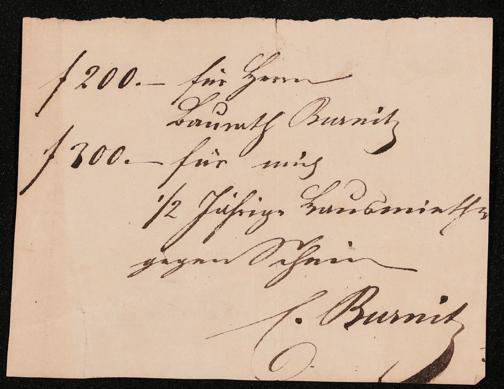 f 200.— für Herrn
Baurath Burnitz
f 300.— für mich
1/2 Jährige Hausmiethe
gegen Schein
C. Burnitz